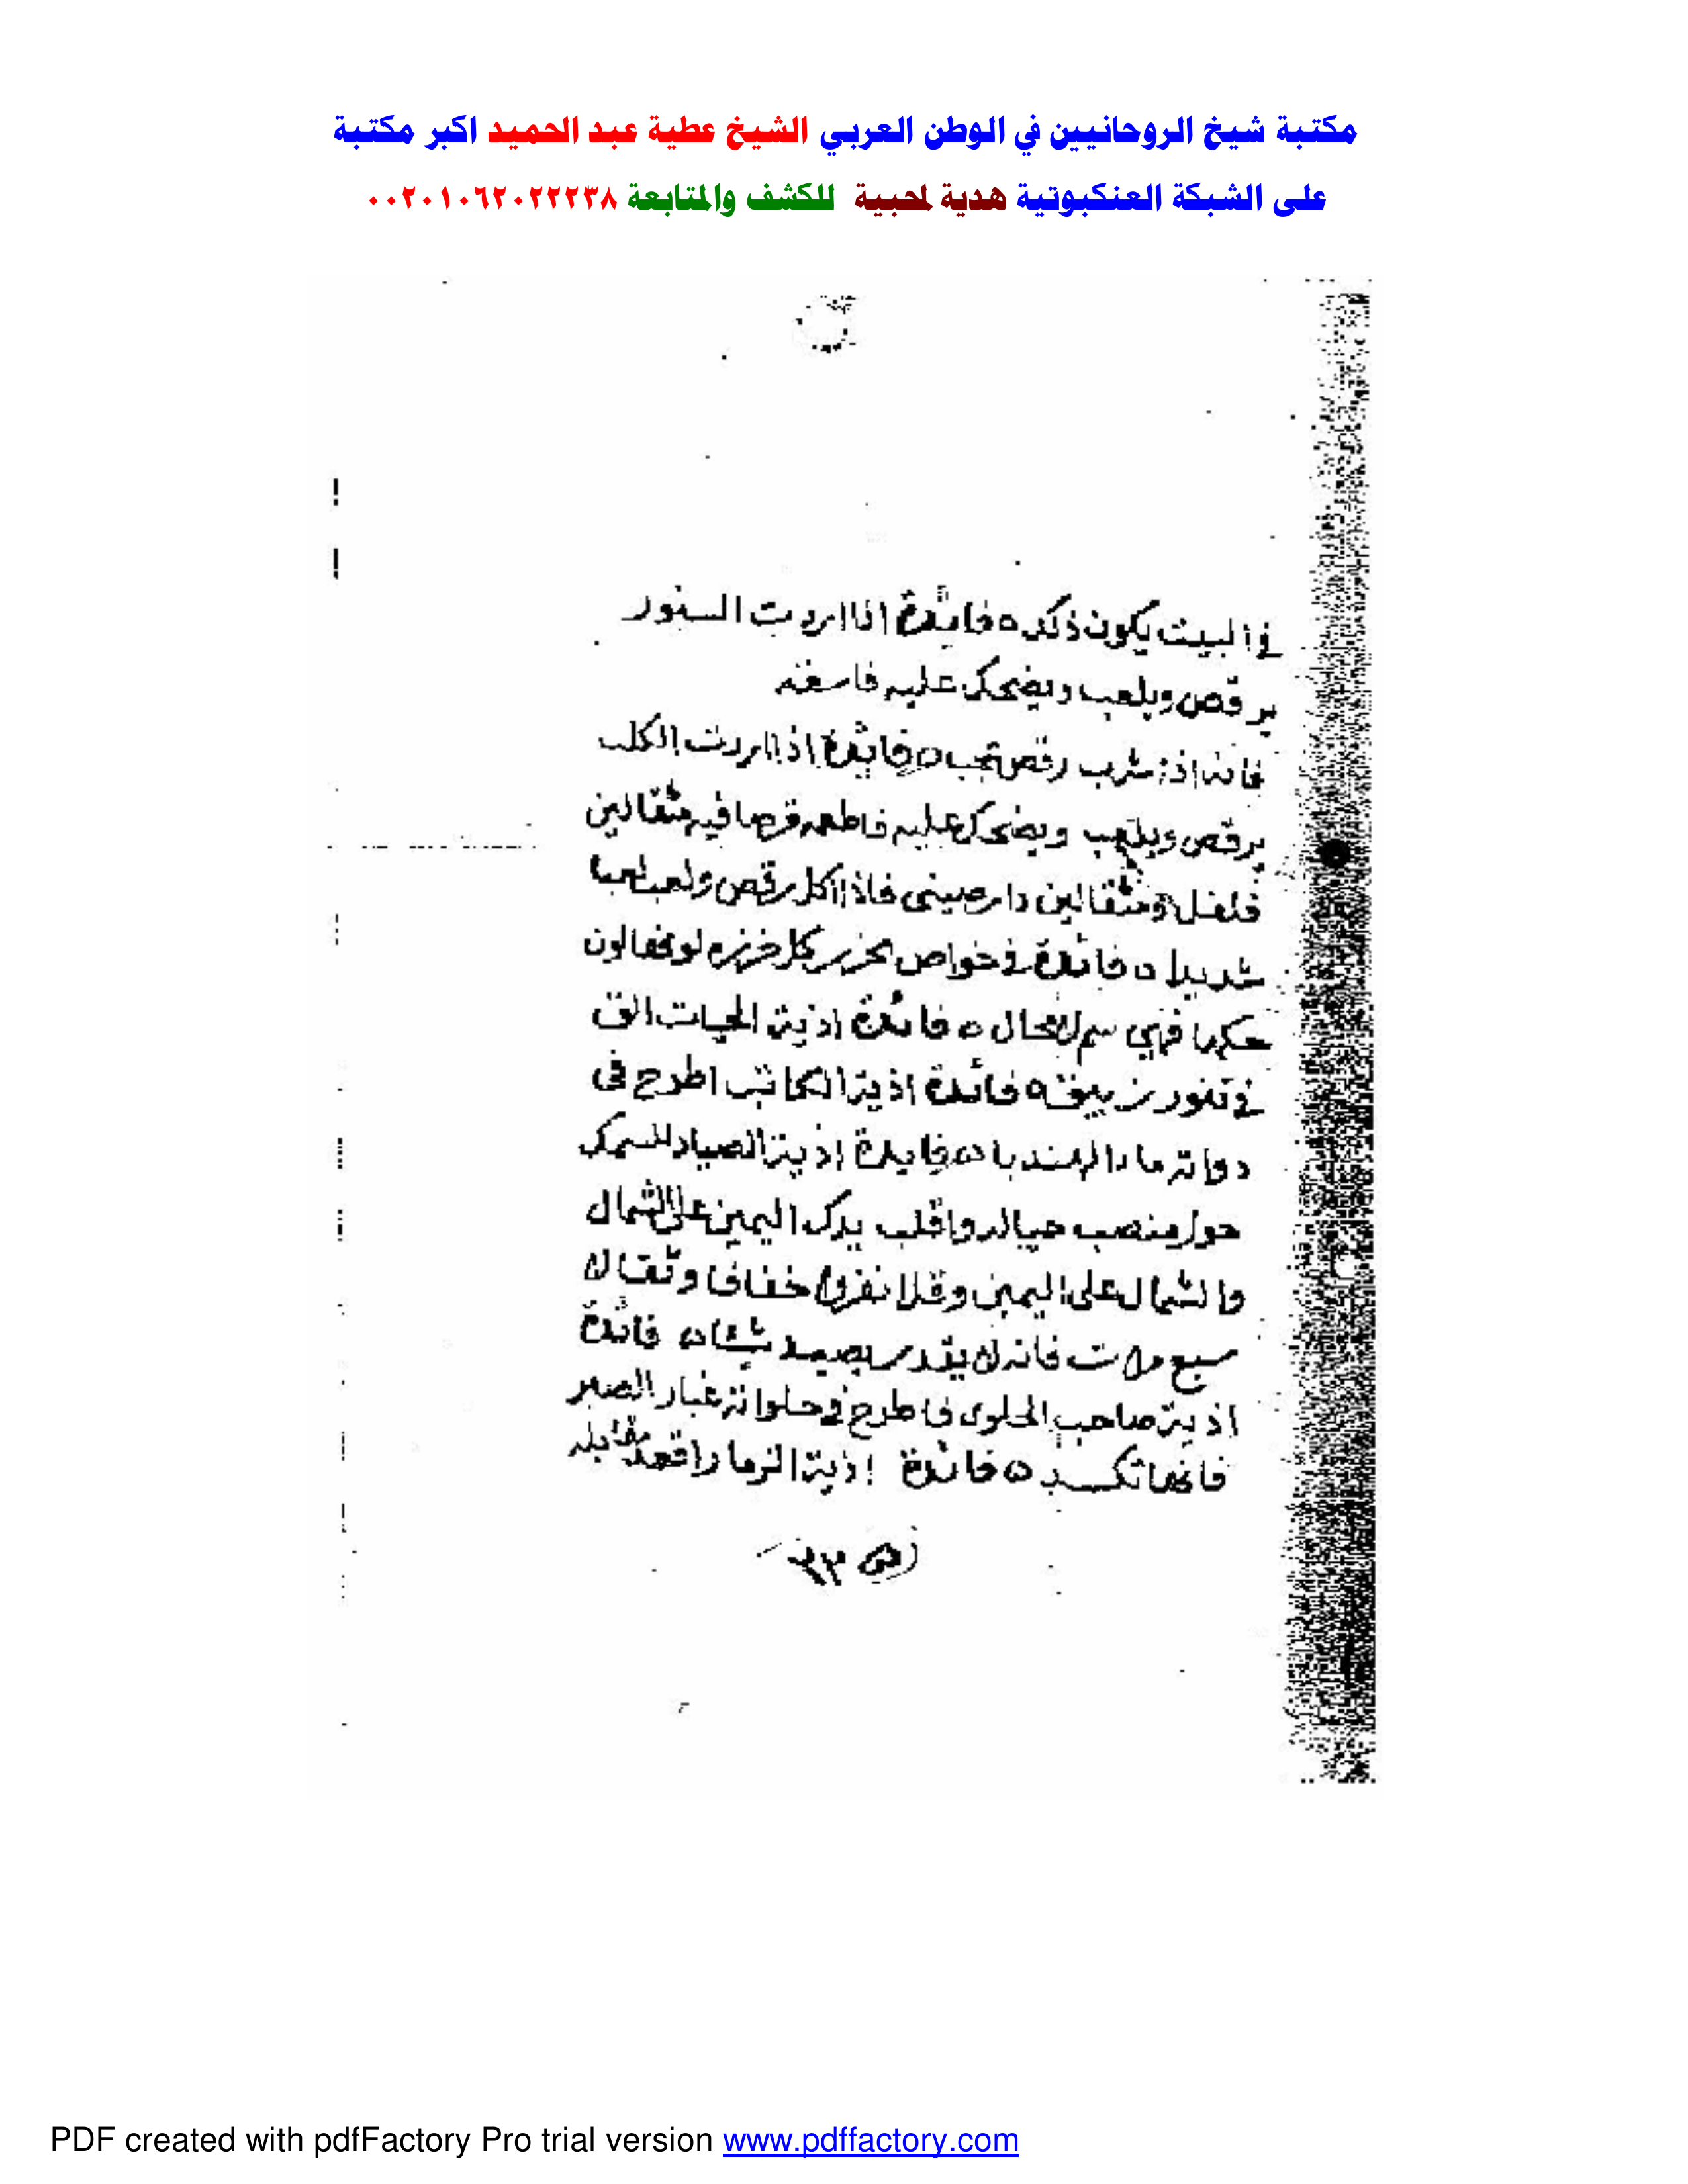 مكتبة شيخ الروحانيين في الوطن العربي الشيخ عطية عبد الحميد اكبر مكتبة
على الشبكة العنكبوتية هدية لمحبية للكشف والمتابعة ٠٠٢٠١٠٦٢٠٢٢٢٣٨
في البيت يكون ذلك ه فايدة اذا اردت السنور
يرقص ويلعب ويضحك عليه فاسقه
فانه اذا شرب رقص عجب ه فايدة اذا اردت الكلب
يرقص ويلعب ويضحك عليه فاطعمه قرصا فيه مثقالين
فلفل ومثقالين دارصيني فاذا اكل رقص ولعب لعبا
شديدا ه فائدة في خواص كل خرزه
فهي سم ه فائدة اذية الحيات الق
في تنور زيبق ه فائدة اذية الكاتب اطرح في
دواته ماء الهندبا ه فايدة اذية الصياد السمك
حول منصب حياله واقلب يدك اليمين على الشمال
والشمال على اليمين وقل انفروا خفافا وثقالا
سبع مرات فانه لا يقدر يصيد شيئا ه فائدة
اذية صاحب الحلوى فاطرح في حلواته غبار الصبر
فانها تكسد ه فائدة اذية الزمار اقعد مقابله
٦٣
PDF created with pdfFactory Pro trial version www.pdffactory.com